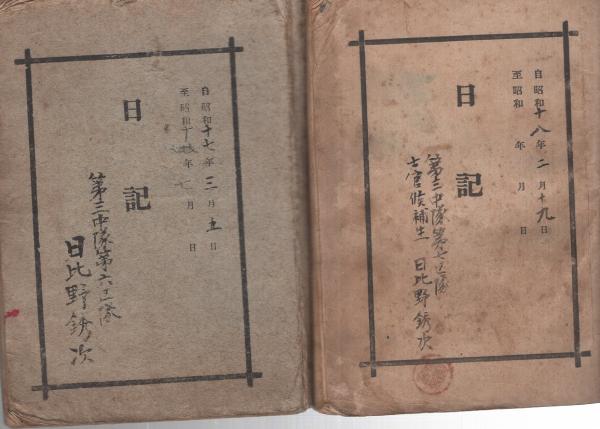 自昭和十七年三月五日
至昭和十 年七月 日
日記
第三中隊第六区隊
日比野銹次
自昭和十八年二月十九日
至昭和 年 月 日
日記
第三中隊第七区隊
士官候補生 日比野銹次